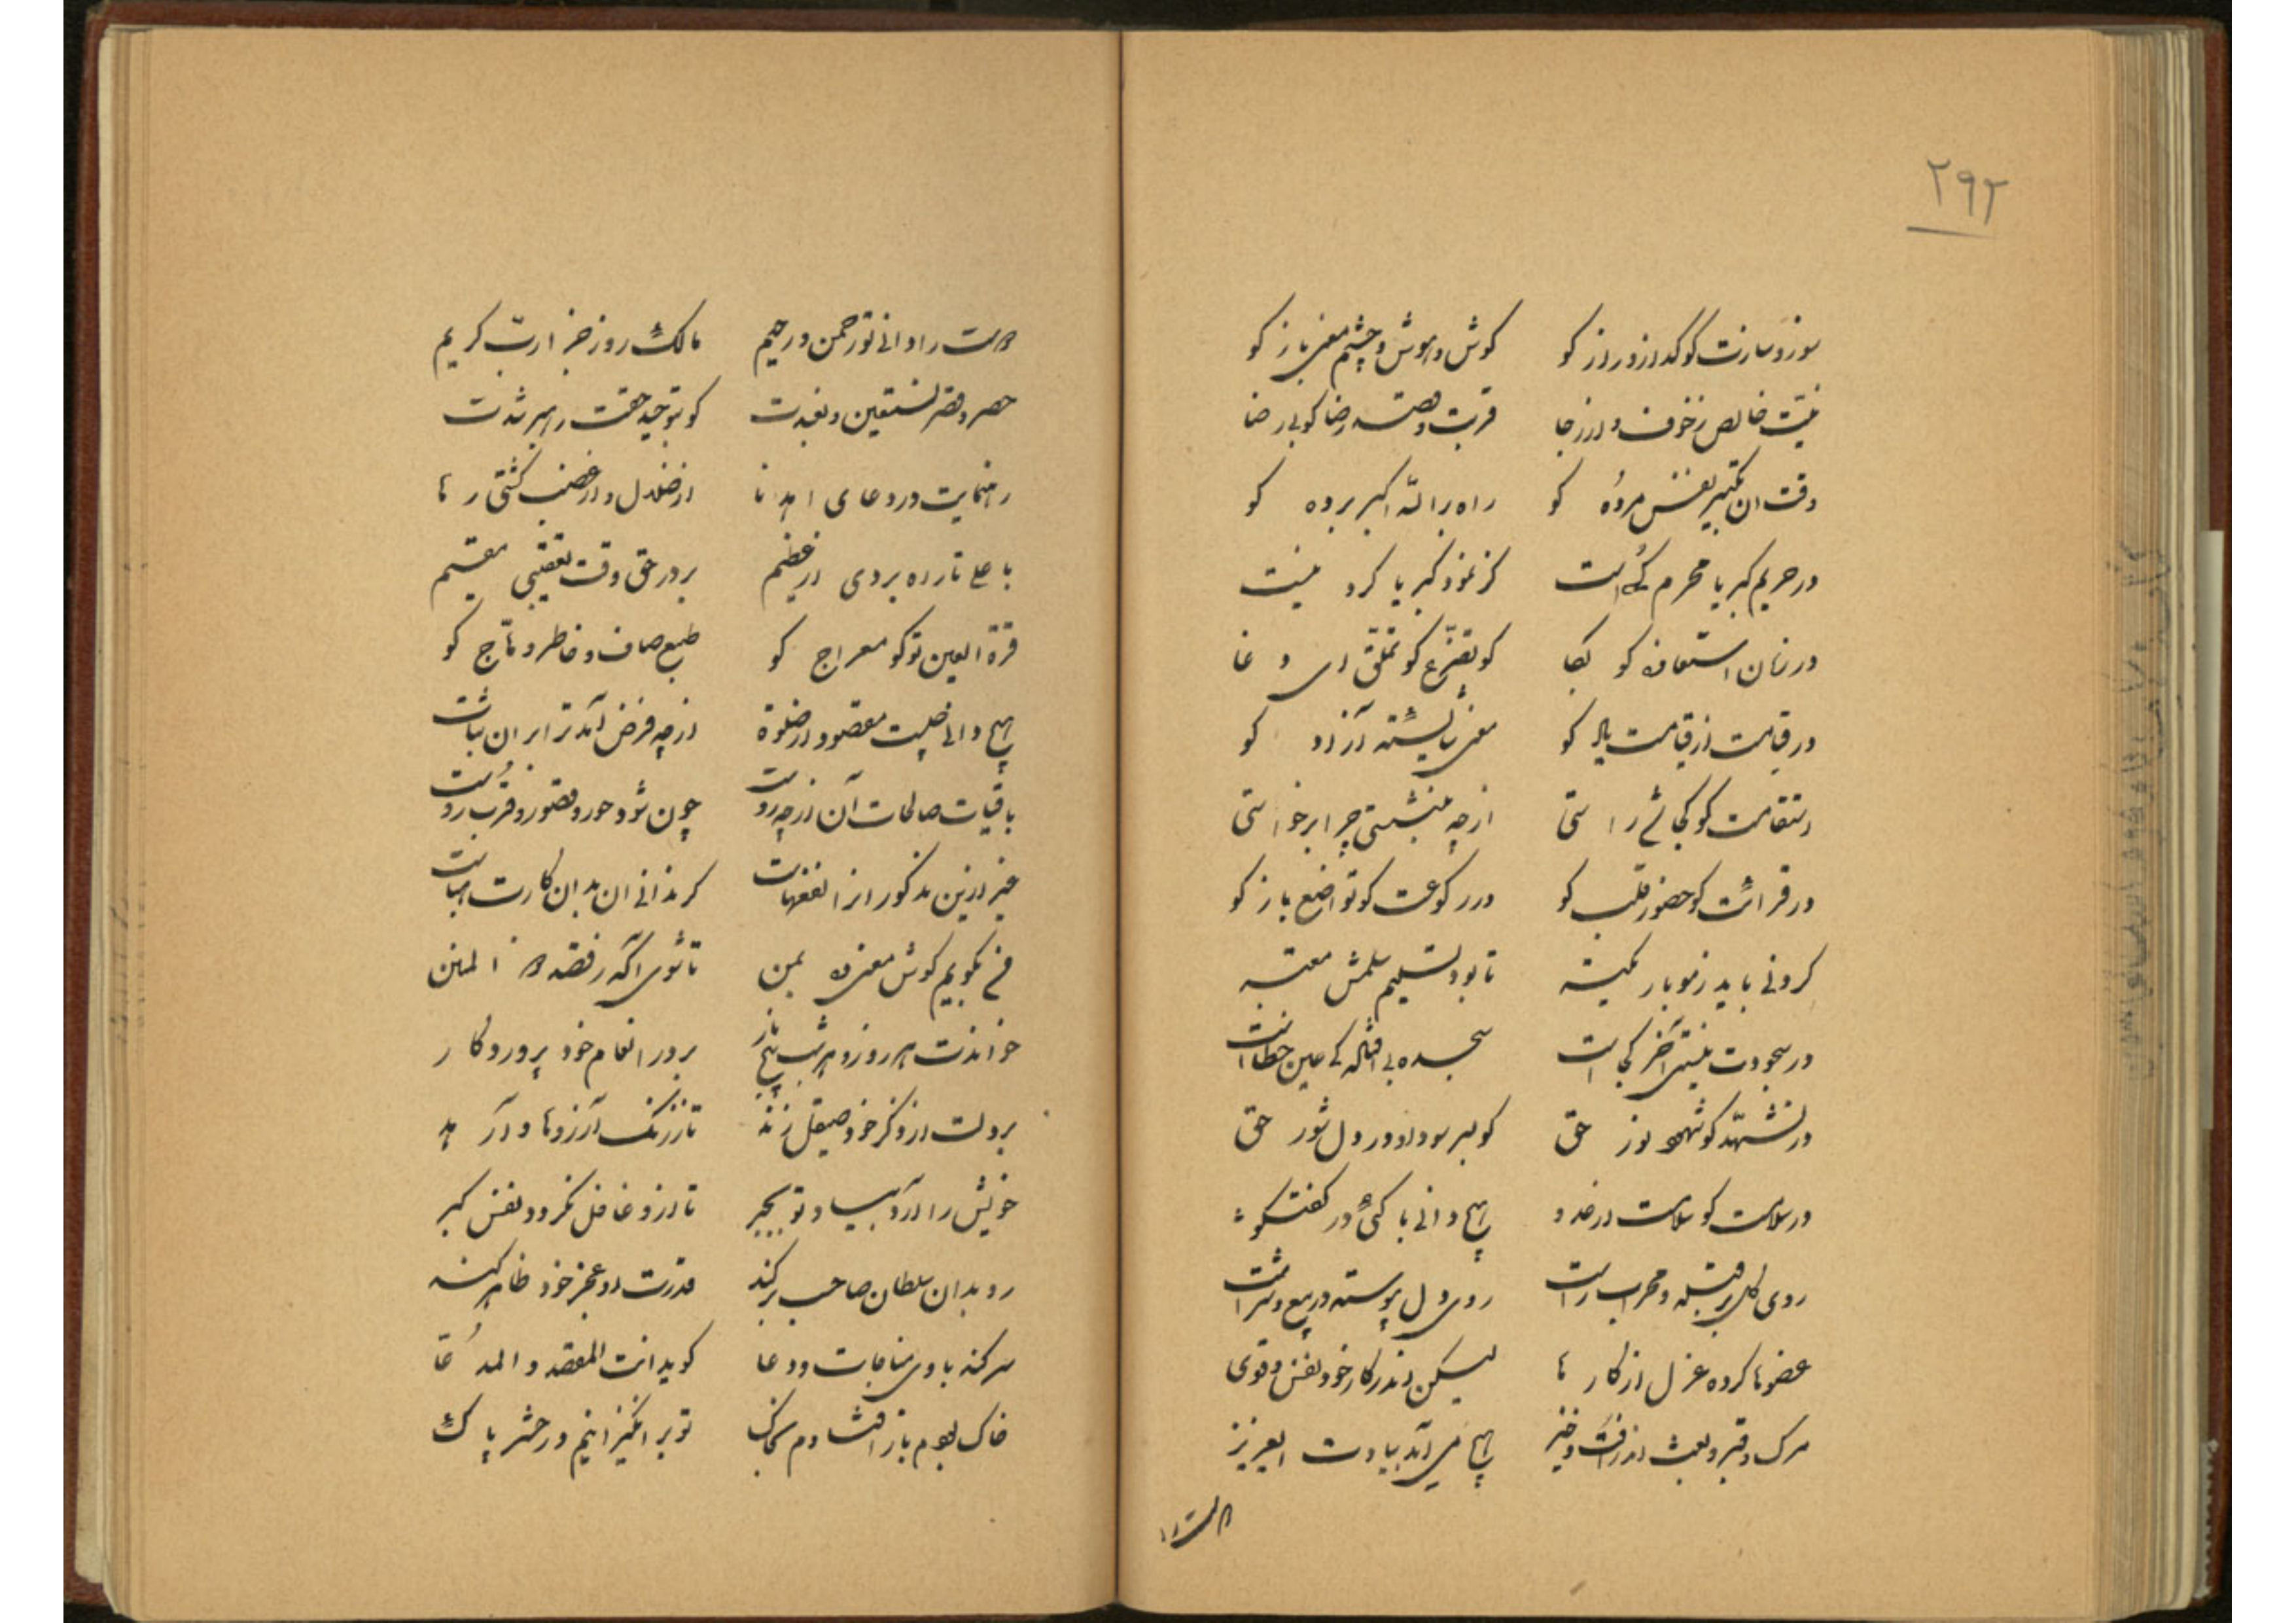 ۲۹۲
سوز و سازت کو گداز و راز کو کوش و هوش و چشم معنی باز کو
نیت خالص ز خوف و از رجا قربت و رضا کو بی رضا
وقت ان تکبیر نفس مرده کو راه بر الله اکبر برده کو
در حریم کبریا محرم کی است کز نمود کبریا کرد نیست
در زمان استعاذه کو بکا کو تضرع کو تملق ای دغا
در قیامت از قیامت یاد کو معنی آزاد کو
استقامت کو کجائی راستی از چه بنشستی چرا برخواستی
در قرائت کو حضور قلب کو در رکوعت کو تواضع باز کو
کردنی باید ز مو باریکتر تا بود تسلیم سلمش معتبر
در سجودت نیستی آخر کجا است سجده بی کی عین خطا است
در تشهد کو شهود نور حق کو بسر سودا و در دل شور حق
در سلامت کو سلامت از عدو هیچ دانی با کئی در گفتگو
روی کل بر قبله و محراب راست روی دل پیوسته در بیع و شراست
عضوها کرده عزل از کارها لیکن اندر کار خود نفس و قوی
مرک و قبر و بعث اندر افت و خیز هیچ می آید بیادت ایعزیز
هست را
هست را دانی تو رحمن و رحیم مالک روز جزا رب کریم
حصر و قصر نستعین و نعبدت کو بتوحید حقت رهبر شدت
رهنمایت در دعای اهدنا از ضلال و از غضب کشتی رها
با علی تا ره بردی از عظیم بر در حق وقت تعقیبی مقیم
قرة العین تو کو معراج کو طبع صاف و خاطر وهاج کو
هیچ دانی چیست مقصود از صلوة از چه فرض آمد ترا بر ان ثبات
باقیات صالحات آن از چه رو است چون شود حور و قصور و قرب دوست
غیر ازین مذکور از افقهات کر ندانی ان بدان کارت هباست
نی نکویم کوش معنی ده بمن تا شوی آکه ز قصد ذوالمنن
خواندت هر روز و هر شب پنج بار بر در انعام خود پروردکار
بر دلت از ذکر خود صیقل زند تا ز زنک آرزوها وا رهد
خویش را آرد بیاد تو بخبر تا ازو غافل نکردد نفس کبر
رو بدان سلطان صاحب بر کند قدرت او عجز خود ظاهر کند
سر کند با وی مناجات و دعا کوید انت المقصد و المدعا
خاک بودم باز افتادم بخاک تو بر انکیزانیم در حشر پاک